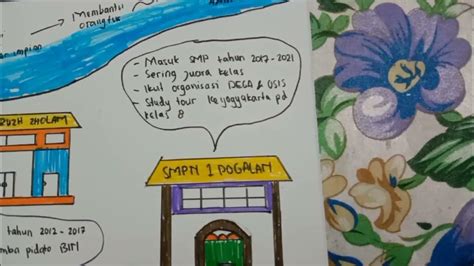 Membantu
orangtua
impian
- Masuk SMP tahun 2017 - 2021
- Sering juara kelas
- Ikut organisasi DEGA & OSIS
- Study tour Kejogyakarta pd
kelas 8
SMPN 1 POGALAN
tahun 2012 - 2017
pidato